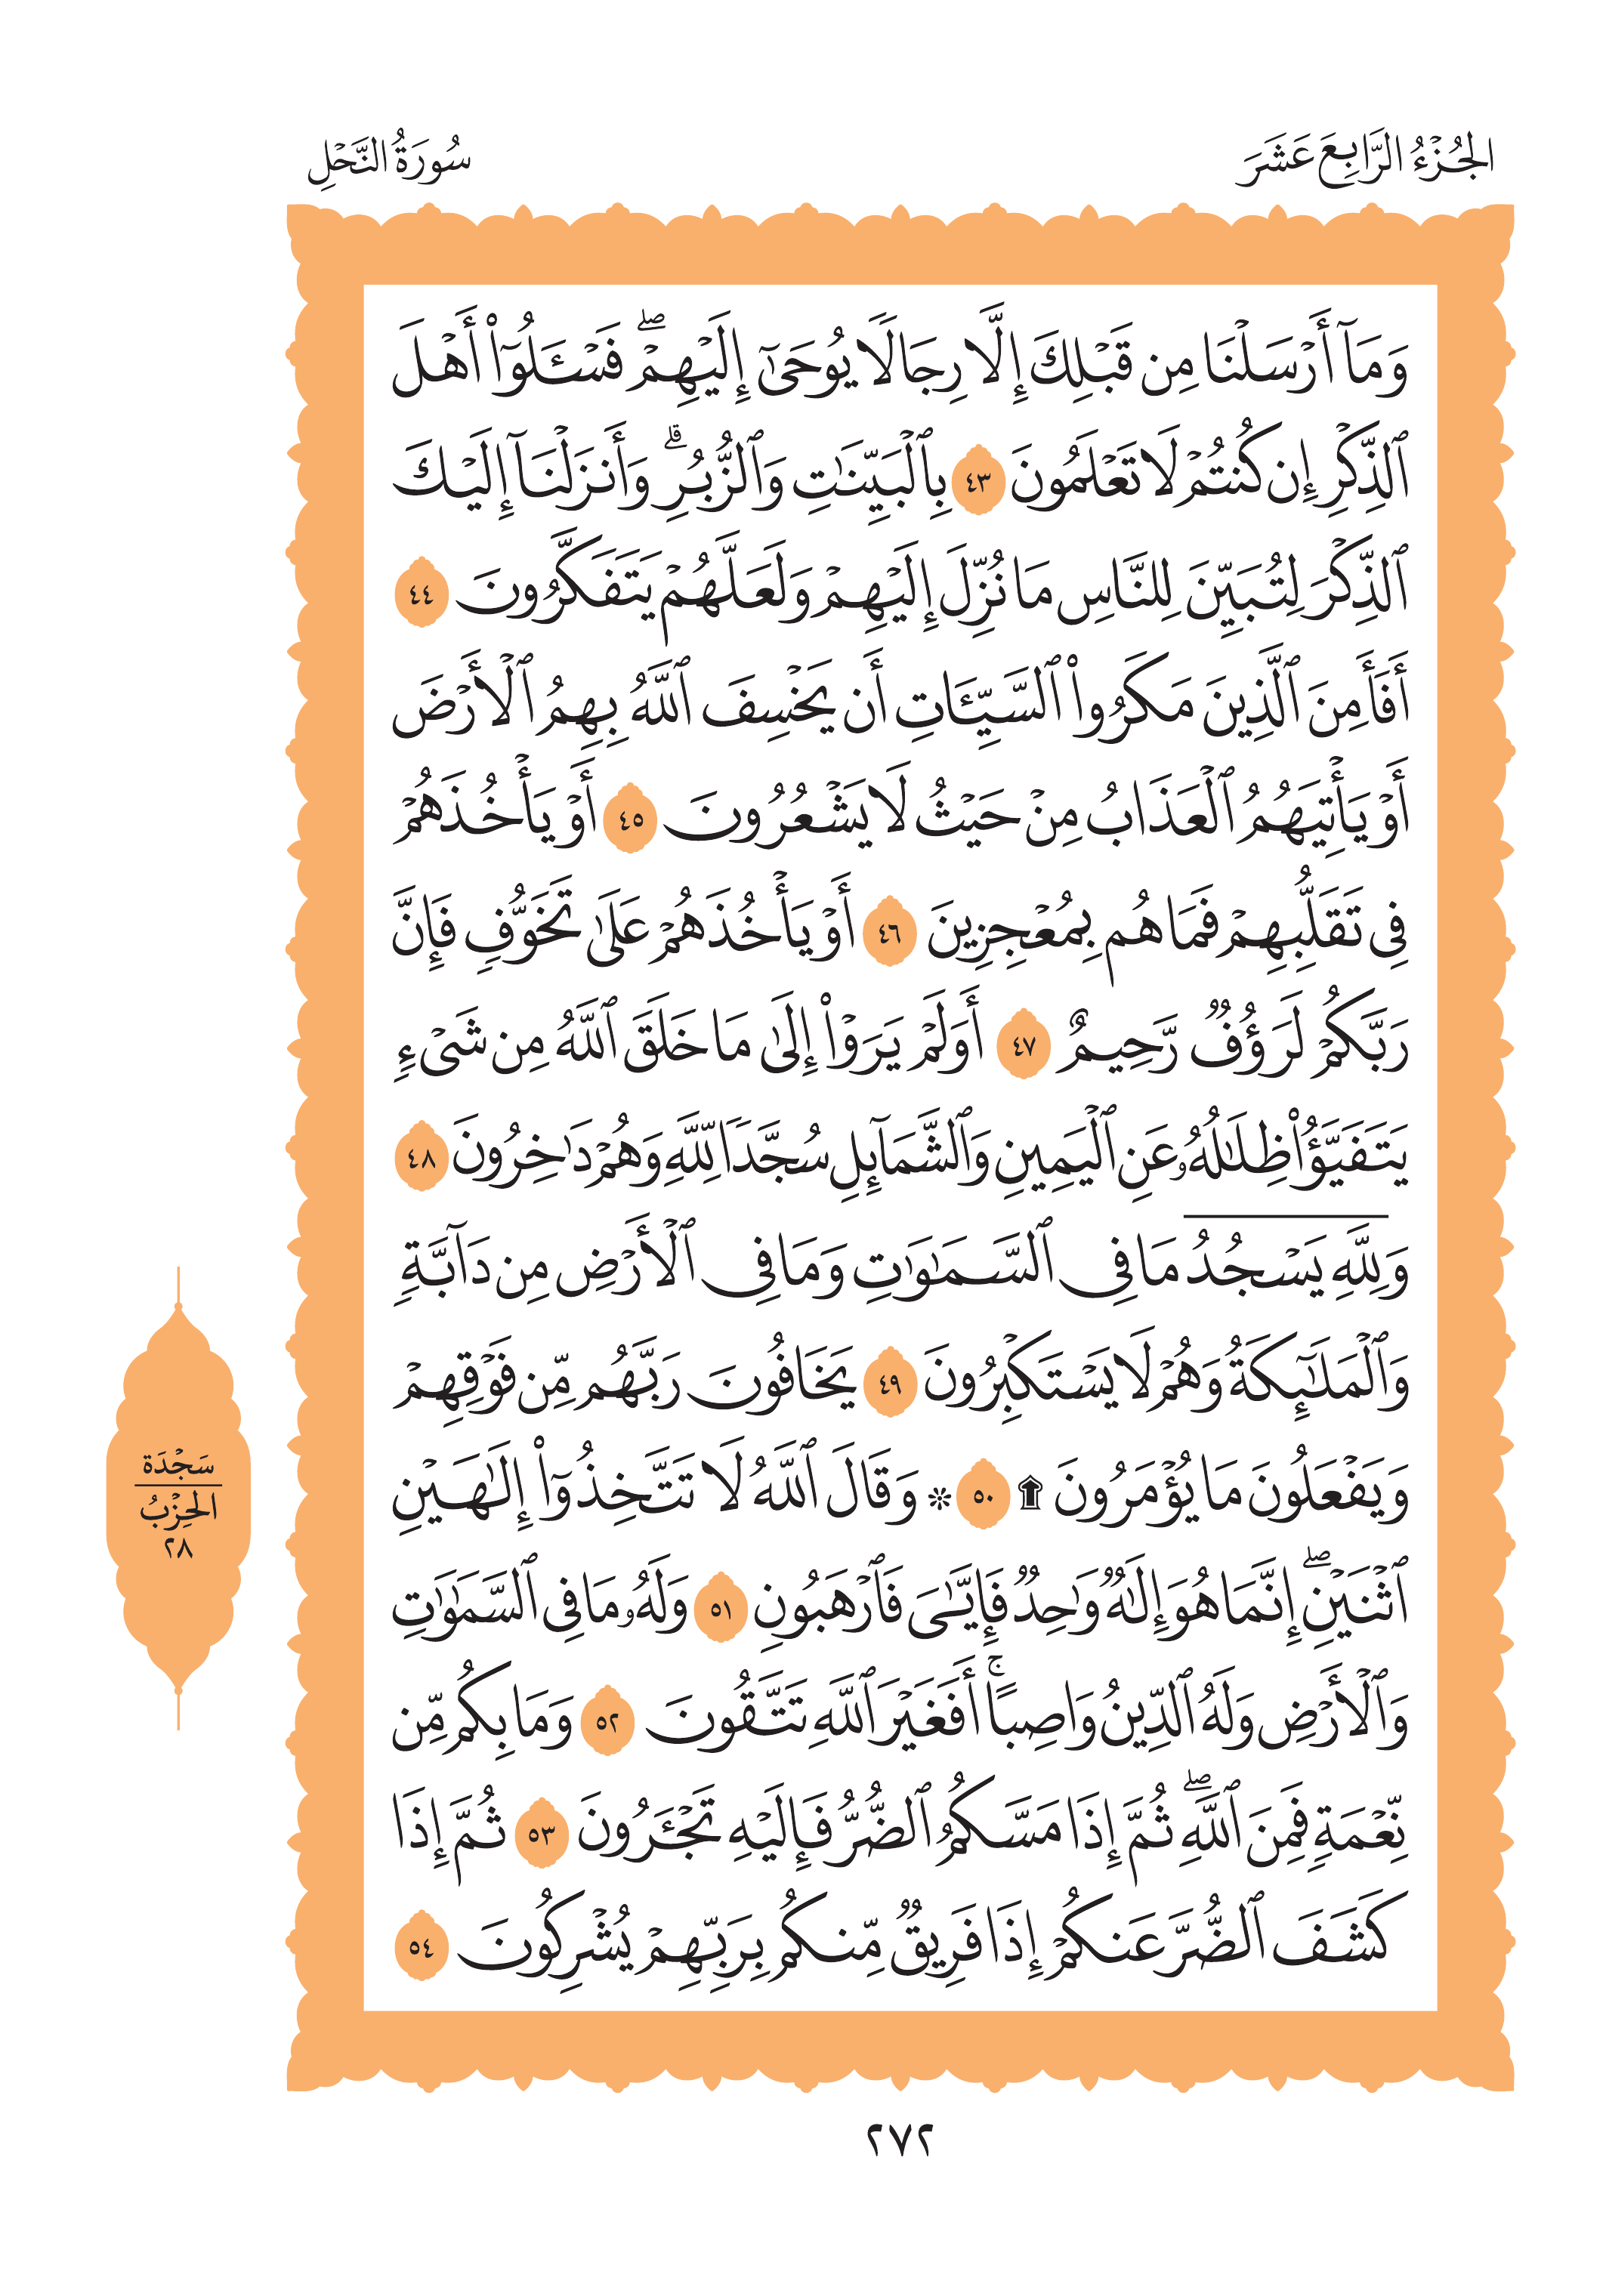 الجُزْءُ الرَّابِعَ عَشَرَ
سُورَةُ النَّحْلِ
وَمَآ أَرۡسَلۡنَا مِن قَبۡلِكَ إِلَّا رِجَالٗا يُوحَىٰٓ إِلَيۡهِمۡۖ فَسۡـَٔلُوٓاْ أَهۡلَ
ٱلذِّكۡرِ إِن كُنتُمۡ لَا تَعۡلَمُونَ ٤٣ بِٱلۡبَيِّنَٰتِ وَٱلزُّبُرِۗ وَأَنزَلۡنَآ إِلَيۡكَ
ٱلذِّكۡرَ لِتُبَيِّنَ لِلنَّاسِ مَا نُزِّلَ إِلَيۡهِمۡ وَلَعَلَّهُمۡ يَتَفَكَّرُونَ ٤٤
أَفَأَمِنَ ٱلَّذِينَ مَكَرُواْ ٱلسَّيِّـَٔاتِ أَن يَخۡسِفَ ٱللَّهُ بِهِمُ ٱلۡأَرۡضَ
أَوۡ يَأۡتِيَهُمُ ٱلۡعَذَابُ مِنۡ حَيۡثُ لَا يَشۡعُرُونَ ٤٥ أَوۡ يَأۡخُذَهُمۡ
فِي تَقَلُّبِهِمۡ فَمَا هُم بِمُعۡجِزِينَ ٤٦ أَوۡ يَأۡخُذَهُمۡ عَلَىٰ تَخَوُّفٖ فَإِنَّ
رَبَّكُمۡ لَرَءُوفٞ رَّحِيمٌ ٤٧ أَوَلَمۡ يَرَوۡاْ إِلَىٰ مَا خَلَقَ ٱللَّهُ مِن شَيۡءٖ
يَتَفَيَّؤُاْ ظِلَٰلُهُۥ عَنِ ٱلۡيَمِينِ وَٱلشَّمَآئِلِ سُجَّدٗا لِّلَّهِ وَهُمۡ دَٰخِرُونَ ٤٨
وَلِلَّهِۤ يَسۡجُدُۤ مَا فِي ٱلسَّمَٰوَٰتِ وَمَا فِي ٱلۡأَرۡضِ مِن دَآبَّةٖ
وَٱلۡمَلَٰٓئِكَةُ وَهُمۡ لَا يَسۡتَكۡبِرُونَ ٤٩ يَخَافُونَ رَبَّهُم مِّن فَوۡقِهِمۡ
وَيَفۡعَلُونَ مَا يُؤۡمَرُونَ ۩ ٥٠ ۞ وَقَالَ ٱللَّهُ لَا تَتَّخِذُوٓاْ إِلَٰهَيۡنِ
ٱثۡنَيۡنِۖ إِنَّمَا هُوَ إِلَٰهٞ وَٰحِدٞ فَإِيَّٰيَ فَٱرۡهَبُونِ ٥١ وَلَهُۥ مَا فِي ٱلسَّمَٰوَٰتِ
وَٱلۡأَرۡضِ وَلَهُ ٱلدِّينُ وَاصِبًاۚ أَفَغَيۡرَ ٱللَّهِ تَتَّقُونَ ٥٢ وَمَا بِكُم مِّن
نِّعۡمَةٖ فَمِنَ ٱللَّهِۖ ثُمَّ إِذَا مَسَّكُمُ ٱلضُّرُّ فَإِلَيۡهِ تَجۡـَٔرُونَ ٥٣ ثُمَّ إِذَا
كَشَفَ ٱلضُّرَّ عَنكُمۡ إِذَا فَرِيقٞ مِّنكُم بِرَبِّهِمۡ يُشۡرِكُونَ ٥٤
سَجْدَة
الحِزْبُ
٢٨
٢٧٢